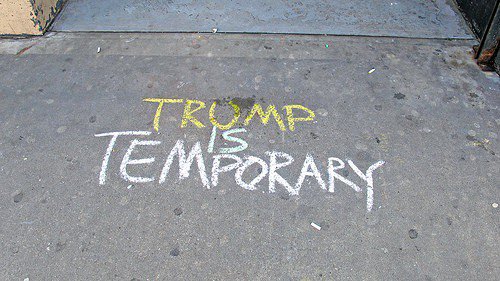 TRUMP
IS
TEMPORARY